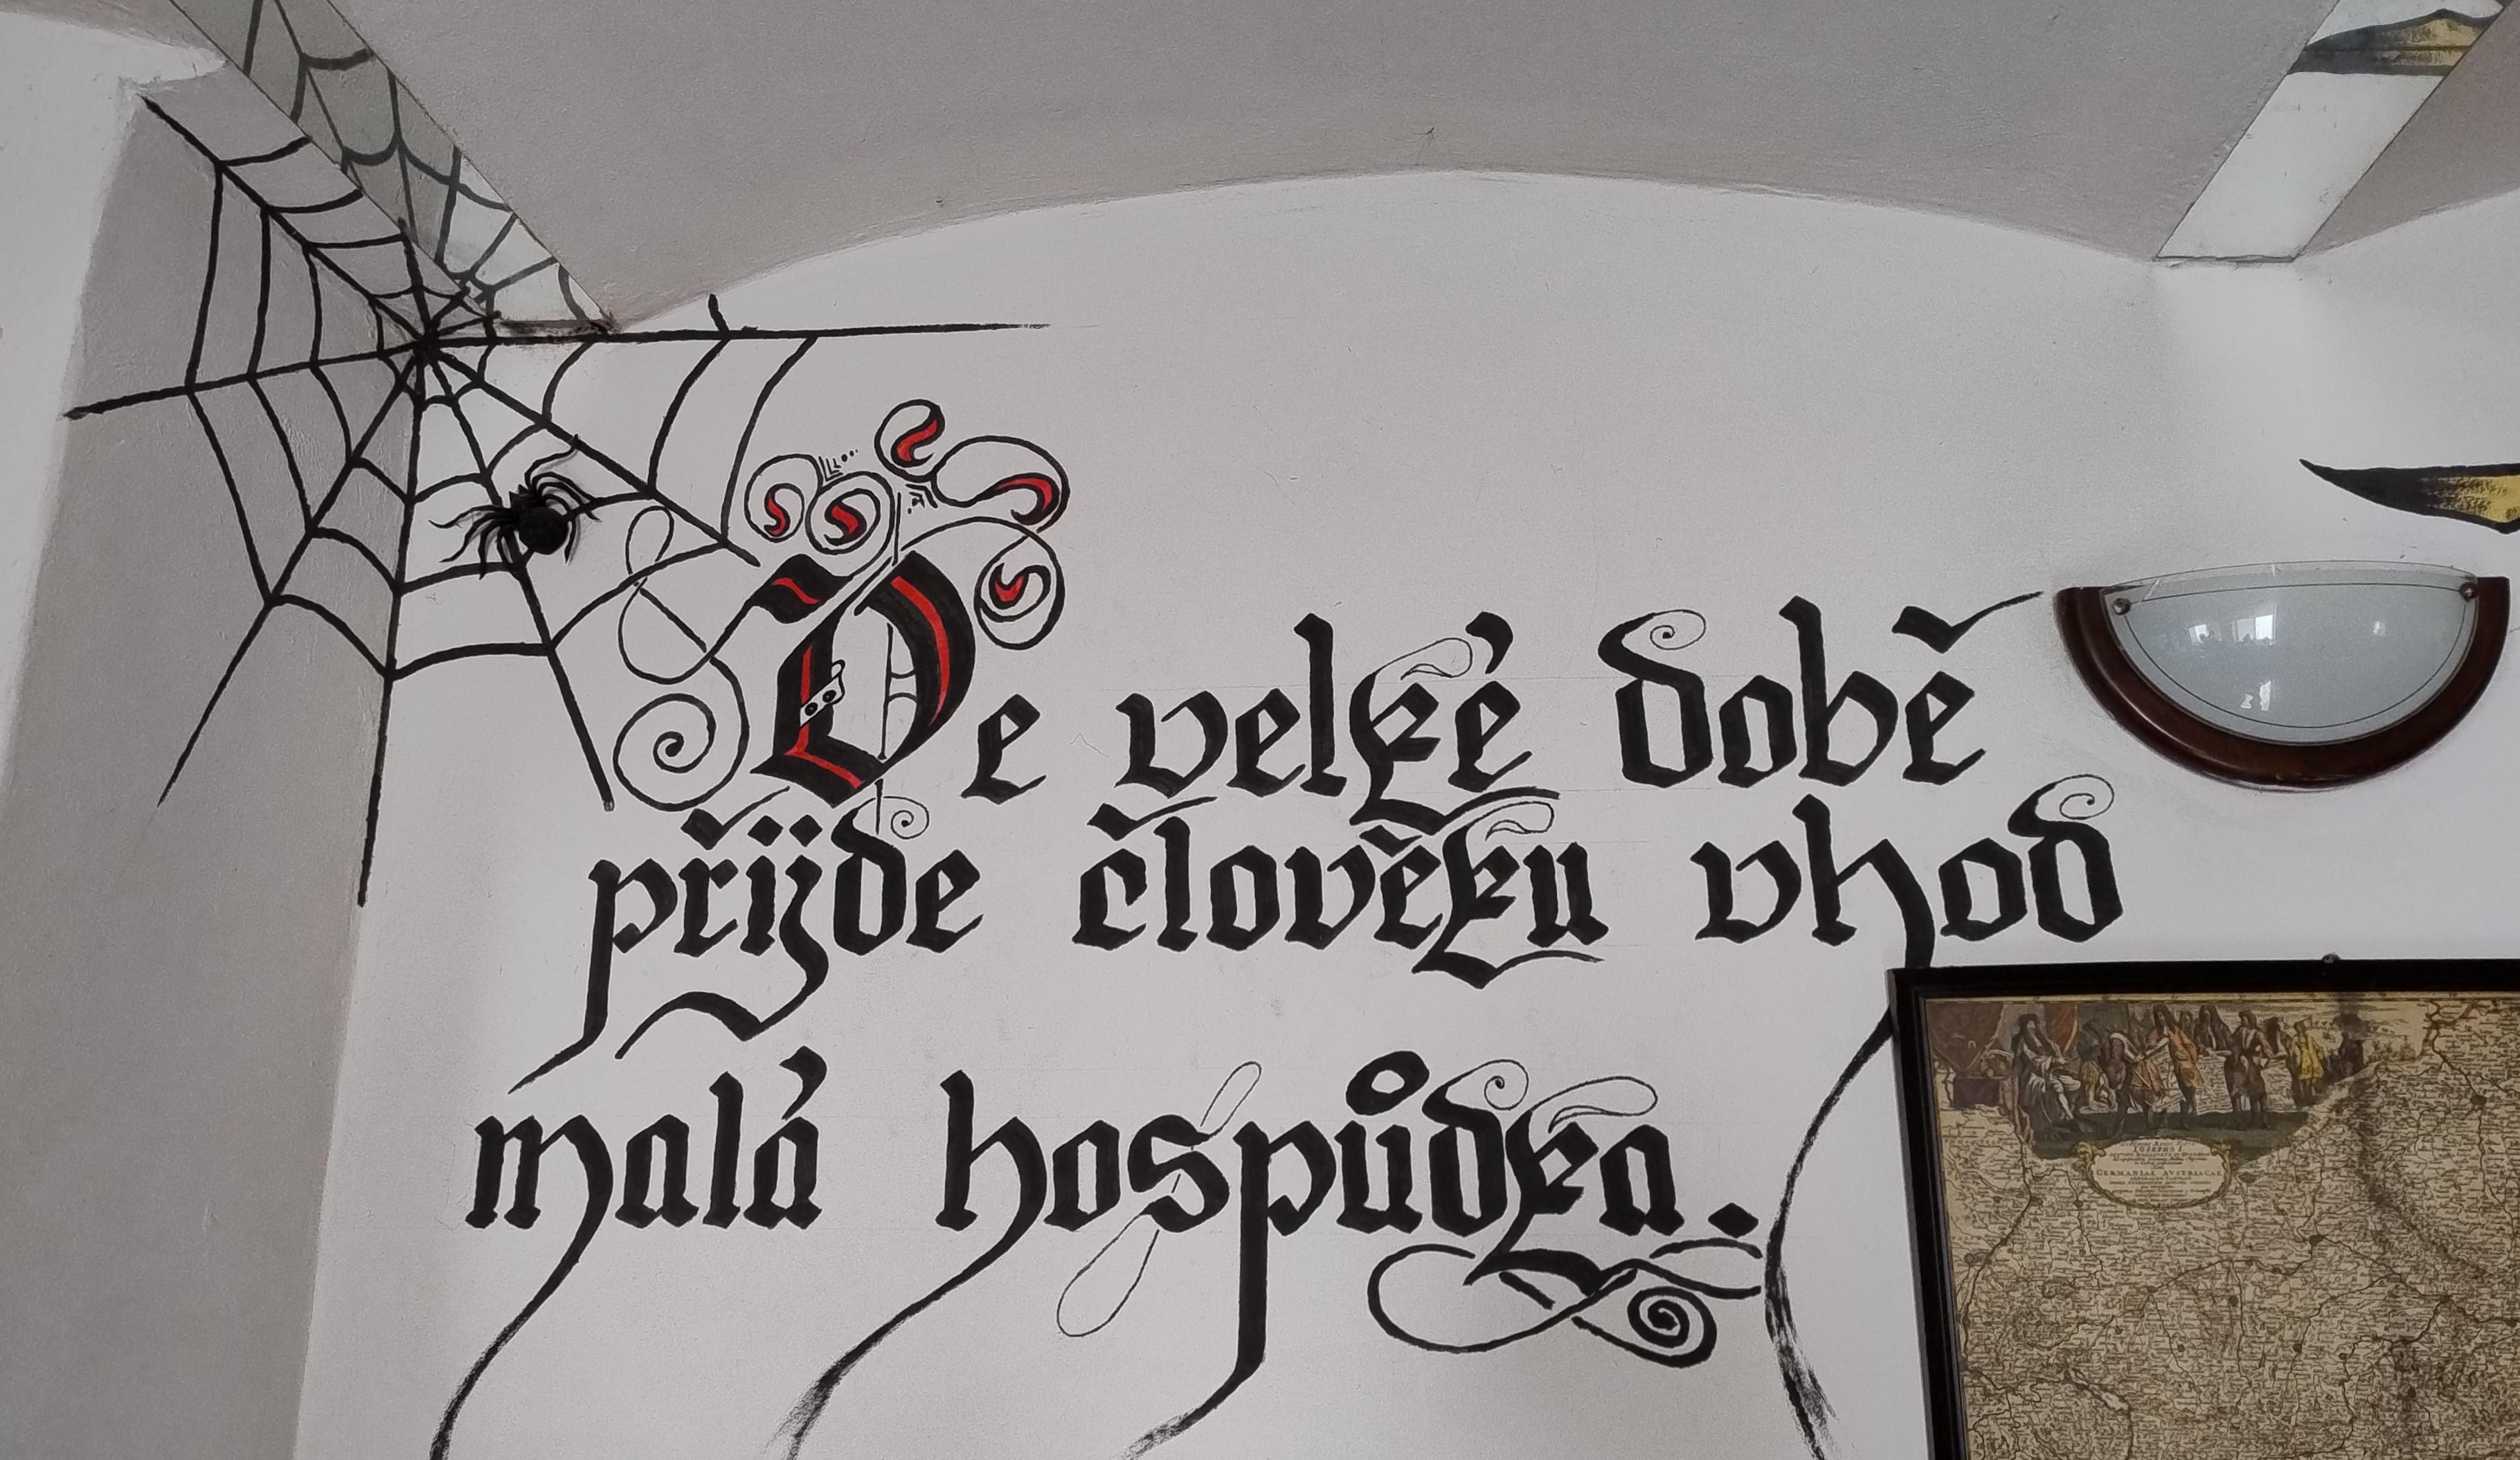 Ve velké době
přijde člověku vhod
malá hospůdka.
GERMANIAE AVSTRIACAE